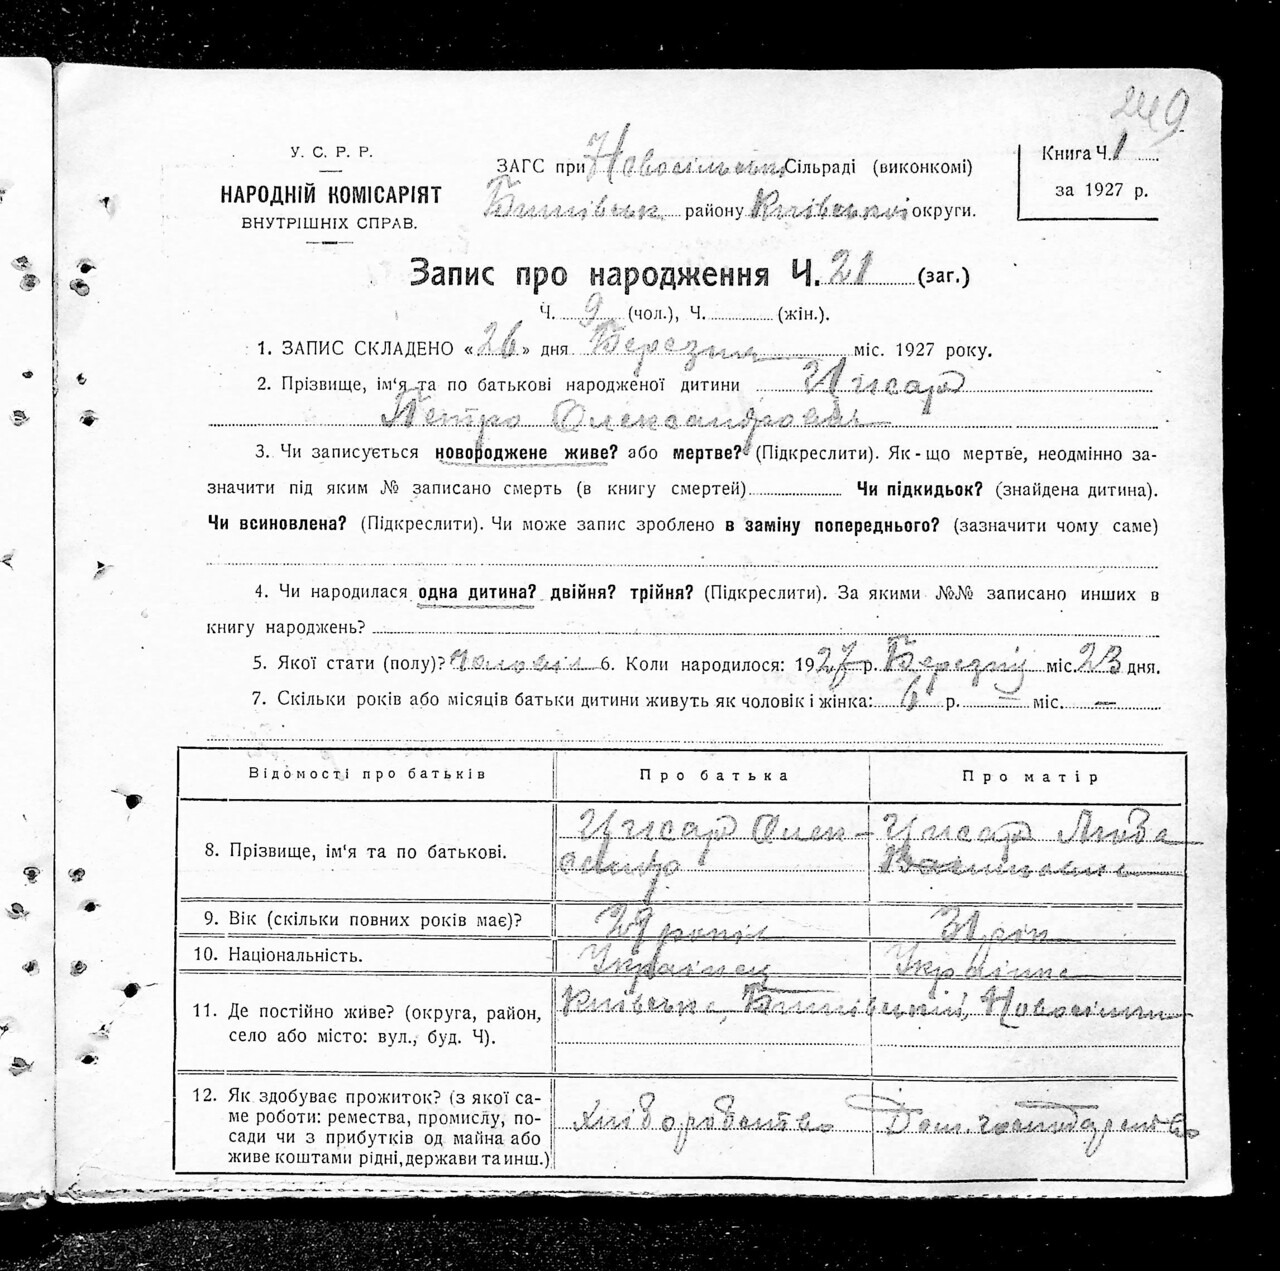 249
У. С. Р. Р.
НАРОДНІЙ КОМІСАРІЯТ
ВНУТРІШНІХ СПРАВ.
ЗАГС при Новосільській Сільраді (виконкомі)
Бишівськ району Київської округи.
Книга Ч. 1
за 1927 р.
Запис про народження Ч. 21 (заг.)
Ч. 9 (чол.), Ч. (жін.).
1. ЗАПИС СКЛАДЕНО «26» дня Березня міс. 1927 року.
2. Прізвище, ім'я та по батькові народженої дитини Цисар
Петро Олександрович
3. Чи записується новороджене живе? або мертве? (Підкреслити). Як-що мертве, неодмінно за-
значити під яким № записано смерть (в книгу смертей) Чи підкидьок? (знайдена дитина).
Чи всиновлена? (Підкреслити). Чи може запис зроблено в заміну попереднього? (зазначити чому саме)
4. Чи народилася одна дитина? двійня? трійня? (Підкреслити). За якими №№ записано инших в
книгу народжень?
5. Якої стати (полу)? 6. Коли народилося: 1927 р. Березня міс. 23 дня.
7. Скільки років або місяців батьки дитини живуть як чоловік і жінка: 6 р. — міс. —
Відомості про батьків Про батька Про матір
8. Прізвище, ім'я та по батькові. Цисар Олек- Цисар Люба
сандр Василівна
9. Вік (скільки повних років має)? 29 років 31 рік
10. Національність. Українец Українка
11. Де постійно живе? (округа, район, Київська, Бишівський, Новосілки
село або місто: вул., буд. Ч).
12. Як здобуває прожиток? (з якої са-
ме роботи: ремества, промислу, по- Хліборобство Дом. господарство
сади чи з прибутків од майна або
живе коштами рідні, держави та инш.)